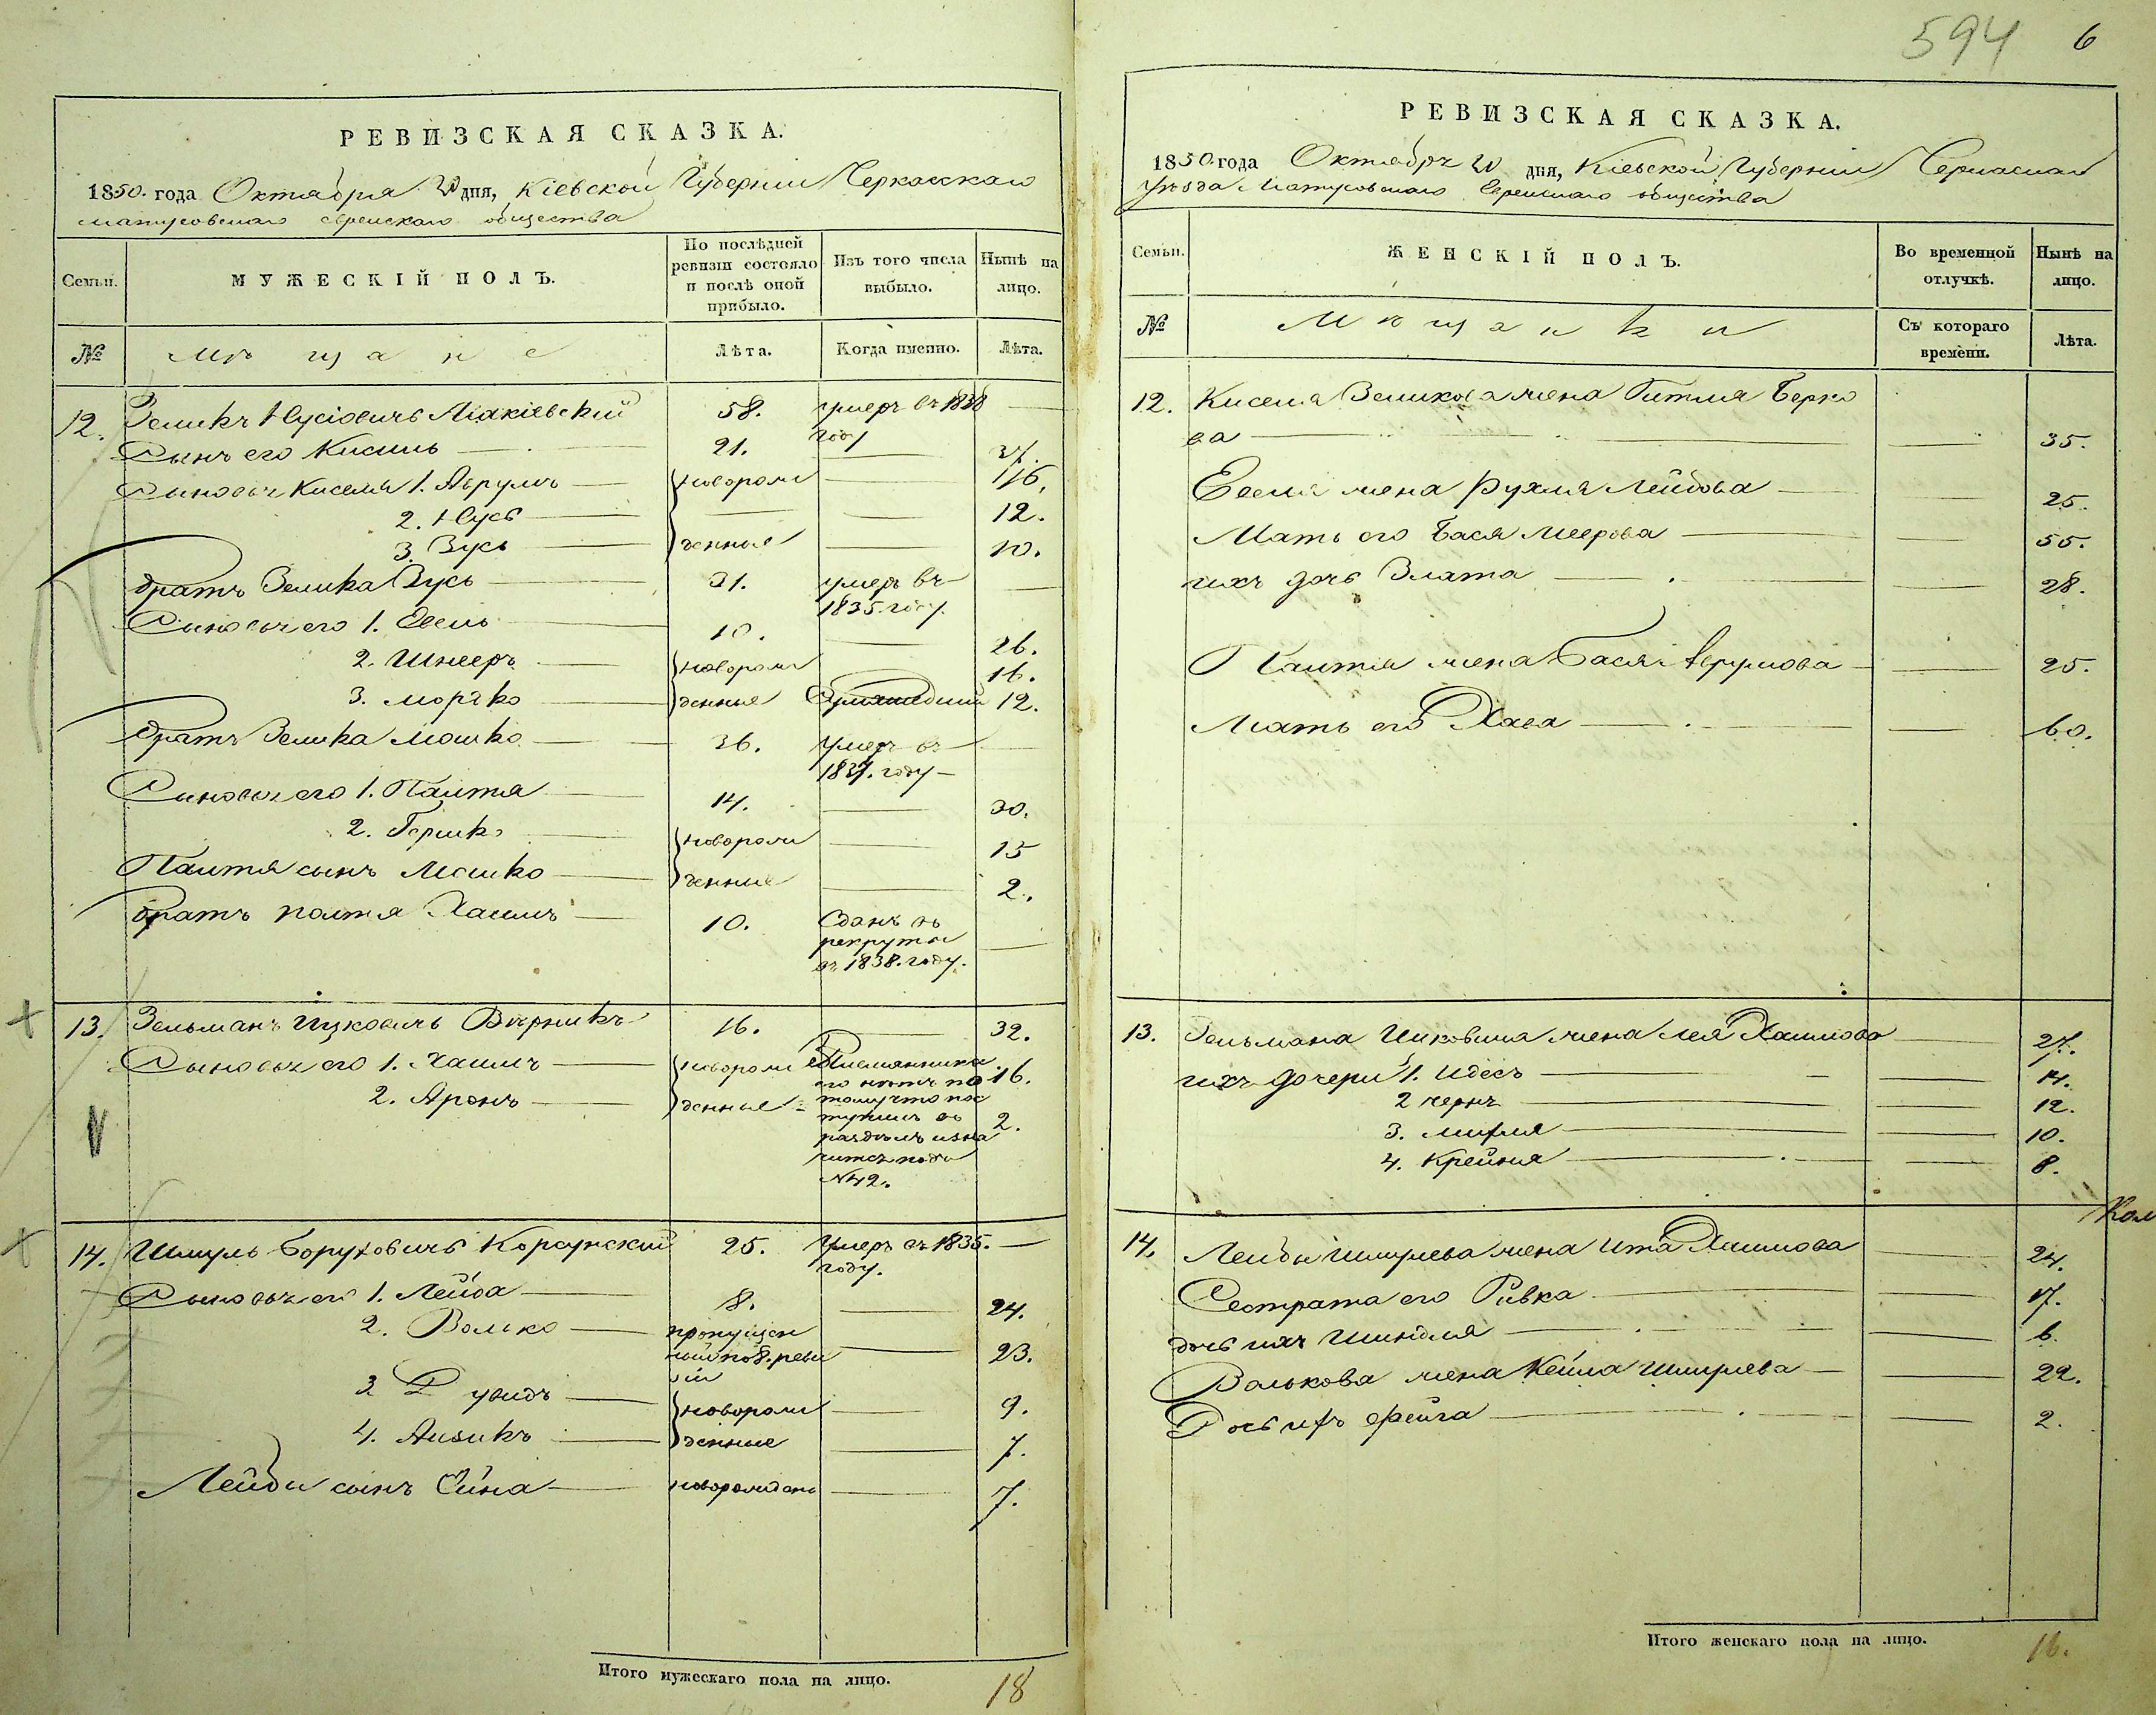 РЕВИЗСКАЯ СКАЗКА.
1850. года Октября 20 дня, Кіевской Губерніи Черкасскаго
матусовскаго еврейскаго общества
Семьи.
МУЖЕСКІЙ ПОЛЪ.
По послѣдней ревизіи состояло и послѣ оной прибыло.
Изъ того числа выбыло.
Нынѣ на лицо.
№
мѣщане
Лѣта.
Когда именно.
Лѣта.
12. Зеликъ Нусіовичъ 58. умеръ въ 1838
году
Сынъ его Кисиль 21.
Сыновья Киселя 1. Аврумъ новорож 16.
2. Нусь 12.
3. Зусь денные 10.
братъ Зелика Зусь 31. умеръ въ
1835 году.
Сыновья его 1. Евель 10. 26.
2. Шнееръ новорож 16.
3. Моръко денные 12.
братъ Зелика Мошко 36. умеръ въ
1837. году
Сыновья его 1. Палтя 14. 30.
2. Гершко новорож 15
Палтя сынъ Мошко денные 2.
братъ палтя Хаимъ 10. Сданъ въ
рекруты
въ 1838. году.
13. Зельманъ Ицковичъ Вѣрникъ 16. 32.
Сыновья его 1. Хаимъ новорож Племянника 16.
его нѣтъ по
2. Аронъ денные тому что пос 2.
тупилъ въ
раздѣлъ и зна
читъ подъ
№42.
14. Шмуль Боруховичъ Корсунскій 25. Умеръ въ 1835.
году.
Сыновья его 1. Лейба 8. 24.
2. Волько пропущен 23.
ный по 8. реви
зіи
3 Дувидъ новорож 9.
4. Аизикъ денные 7.
Лейбы сынъ новорожден 7.
Итого мужескаго пола на лицо. 18
594 6
РЕВИЗСКАЯ СКАЗКА.
1850. года Октября 20 дня, Кіевской Губерніи Черкаскаго
Уѣзда Матусовскаго Еврейскаго общества
Семьи.
ЖЕНСКІЙ ПОЛЪ.
Во временной отлучкѣ.
Нынѣ на лицо.
№
Мѣщанки
Съ котораго времени.
Лѣта.
12. Киселя Зеликова жена Гитля Берко
ва 35.
Евеля жена Рухля Лейбова 25.
Мать его Бася Меерова 55.
ихъ дочь Злата 28.
Палтя жена Бася Аврумова 25.
Мать его Хася 60.
13. Зельмана Ицковича жена Лея Хаимова 27.
ихъ дочери 1. Идесъ 14.
2 черня 12.
3. 10.
4. Крейня 8.
14. Лейбы Шмулева жена Ита Хаимова 24.
Сестра его Ривка 17.
дочь ихъ Шиндля 6.
Волькова жена Кейла Шмулева 22.
Дочь ихъ Фейга 2.
Итого женскаго пола на лицо. 16.